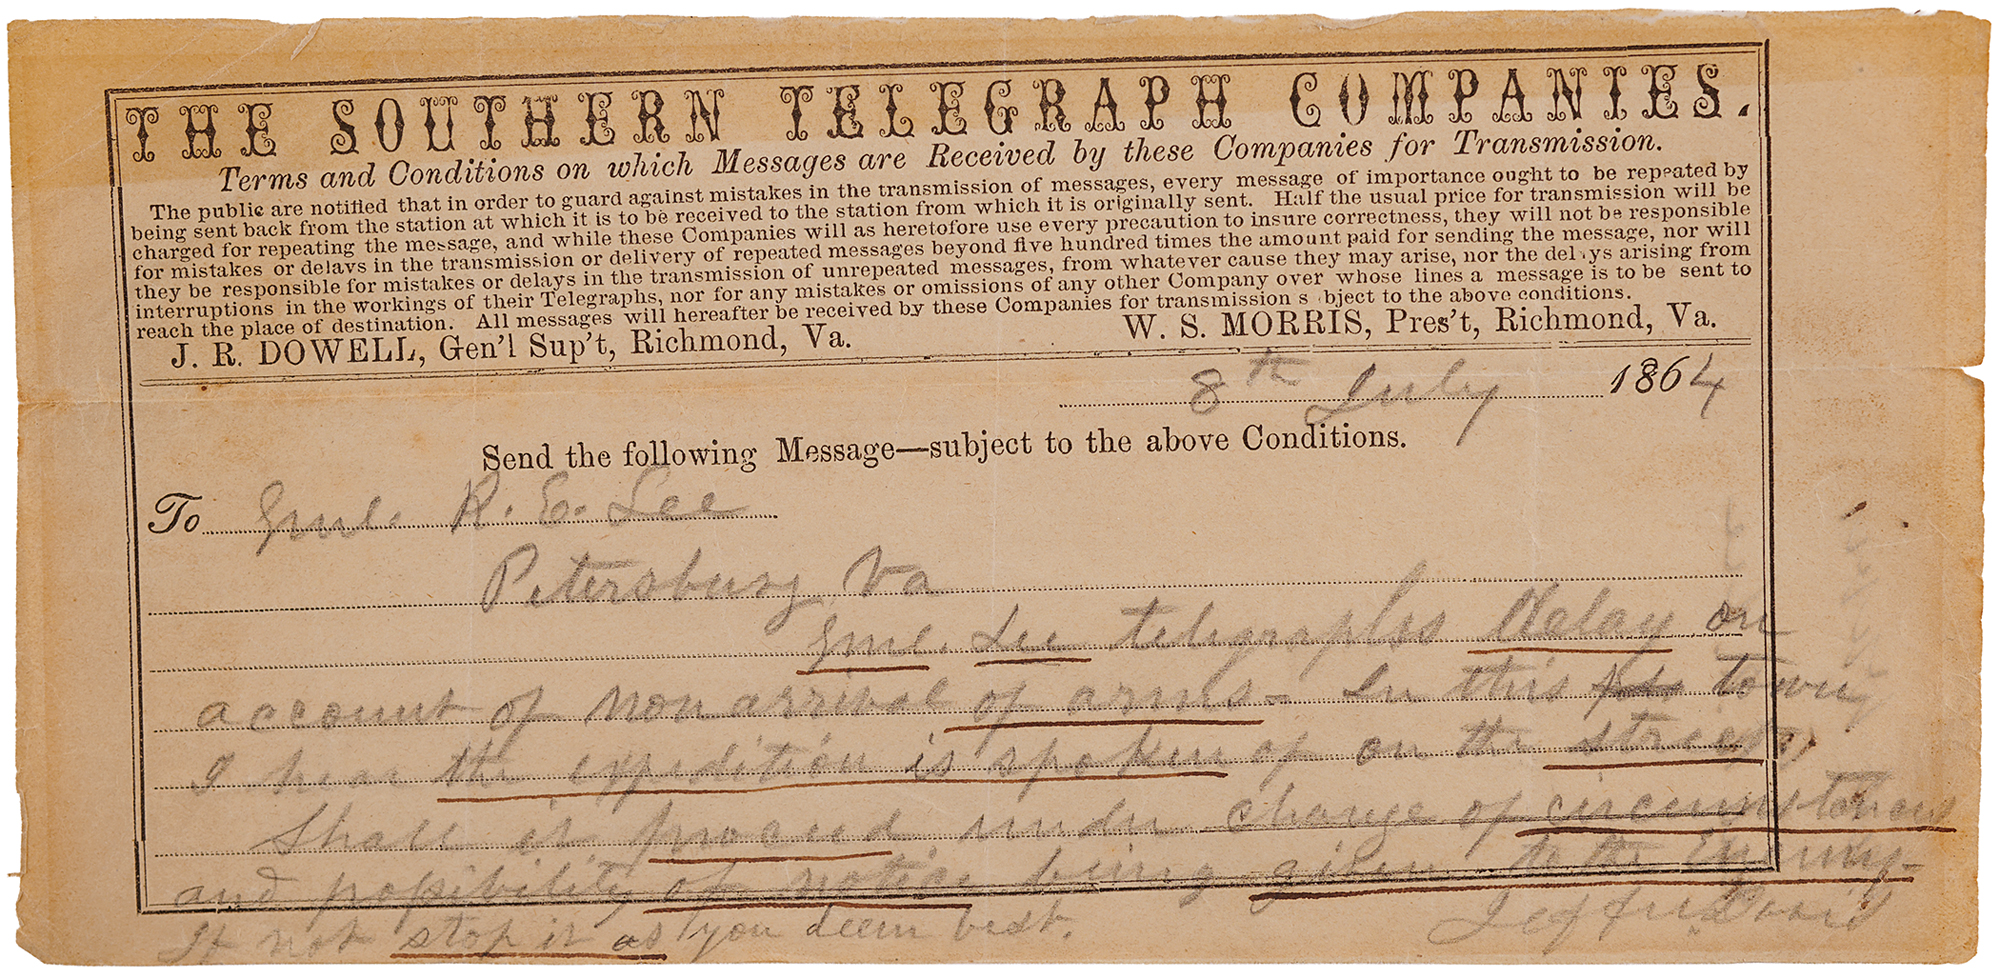 THE SOUTHERN TELEGRAPH COMPANIES.
Terms and Conditions on which Messages are Received by these Companies for Transmission.
The public are notified that in order to guard against mistakes in the transmission of messages, every message of importance ought to be repeated by
being sent back from the station at which it is to be received to the station from which it is originally sent. Half the usual price for transmission will be
charged for repeating the message, and while these Companies will as heretofore use every precaution to insure correctness, they will not be responsible
for mistakes or delays in the transmission or delivery of repeated messages beyond five hundred times the amount paid for sending the message, nor will
they be responsible for mistakes or delays in the transmission of unrepeated messages, from whatever cause they may arise, nor the del ys arising from
interruptions in the workings of their Telegraphs, nor for any mistakes or omissions of any other Company over whose lines a message is to be sent to
reach the place of destination. All messages will hereafter be received by these Companies for transmission s bject to the above conditions.
J. R. DOWELL, Gen'l Sup't, Richmond, Va. W. S. MORRIS, Pres't, Richmond, Va.
8th July 1864
Send the following Message—subject to the above Conditions.
To Genl. R. E. Lee
Petersburg Va
Genl. Lee telegraphs Delay on
account of non arrival of arms— In this town
I hear the expedition is spoken of on the streets
Shall it proceed under change of circumstances
and possibility of notice being given to the Enemy—
If not stop it as you deem best. Jeffn Davis